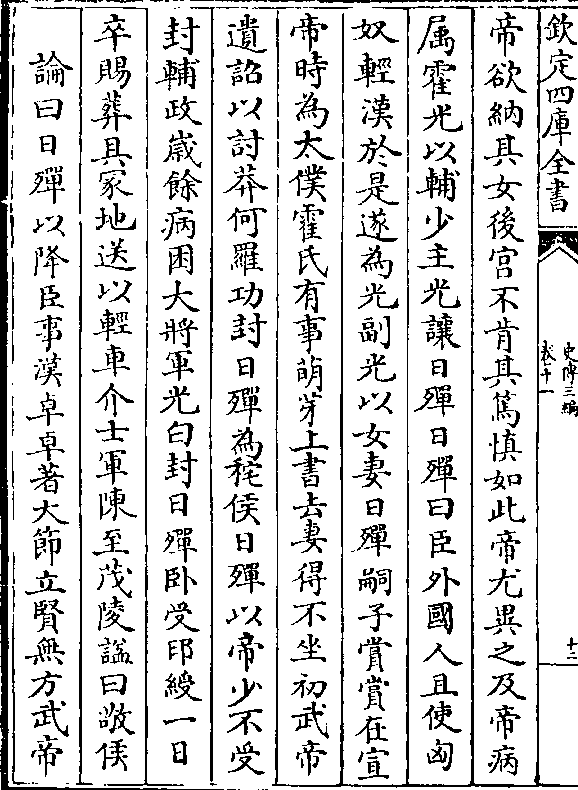 欽定四庫全書
史傳三編
卷十一
十二
帝欲納其女後宮不肯其篤慎如此帝尤異之及帝病
属霍光以輔少主光讓日殫日殫曰臣外國人且使匈
奴輕漢於是遂為光副光以女妻日殫嗣子賞賞在宣
帝時為太僕霍氏有事萌芽上書去妻得不坐初武帝
遺詔以討莽何羅功封日殫為秺侯日殫以帝少不受
封輔政歲餘病困大將軍光白封日殫卧受印綬一日
卒賜葬具冢地送以輕車介士軍陳至茂陵諡曰敬侯
論曰日殫以降臣事漢卓卓著大節立賢無方武帝